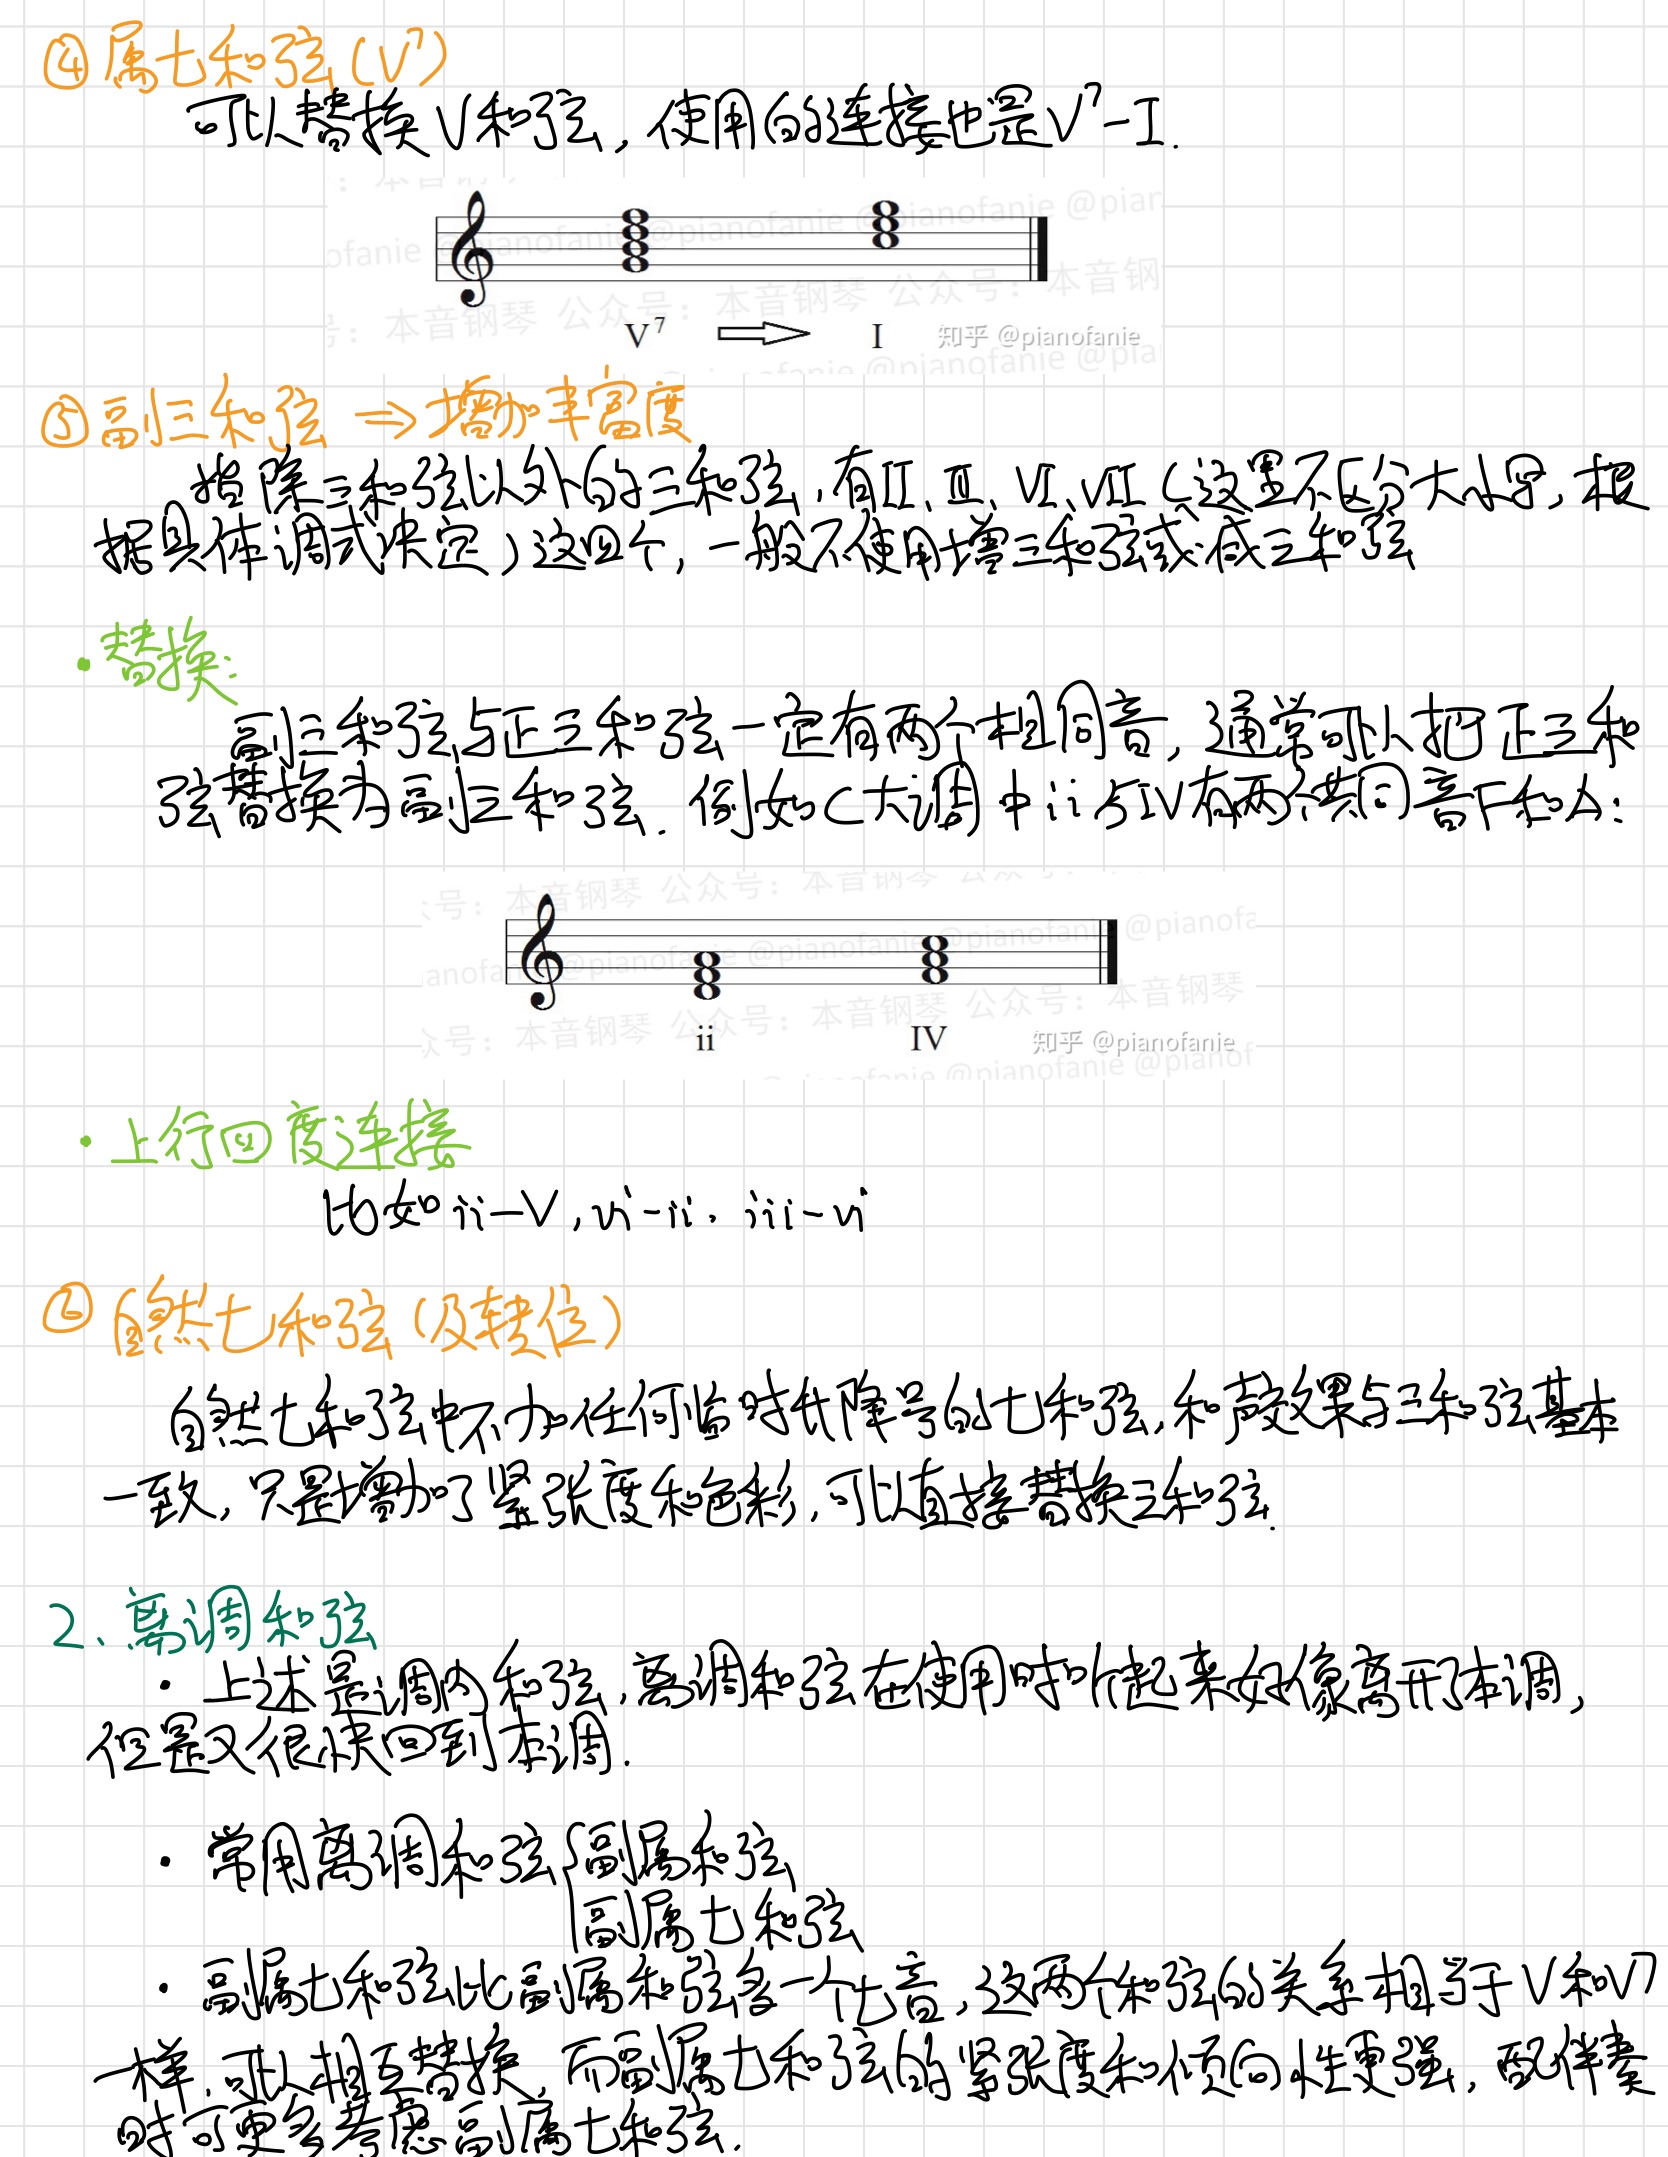 ④属七和弦(V⁷)
可以替换V和弦,使用的连接也是V⁷-I.
V⁷ I 知乎 @pianofanie
⑤副三和弦 ⇒增加丰富度
指除三和弦以外的三和弦,有II、III、VI、VII(这里不区分大小写,根
据具体调式决定)这四个,一般不使用增三和弦或减三和弦
·替换:
副三和弦与正三和弦一定有两个相同音,通常可以把正三和
弦替换为副三和弦.例如C大调中ii与IV有两个共同音F和A:
ii IV 知乎 @pianofanie
·上行四度连接
比如ii-V,vi-ii.iii-vi
⑥自然七和弦(及转位)
自然七和弦中不加任何临时升降号的七和弦,和声效果与三和弦基本
一致,只是增加了紧张度和色彩,可以直接替换三和弦.
2、离调和弦
·上述是调内和弦,离调和弦在使用时听起来好像离开了本调,
但是又很快回到本调.
·常用离调和弦{副属和弦
副属七和弦
·副属七和弦比副属和弦多一个七音,这两个和弦的关系相当于V和V⁷
一样,可以相互替换,而副属七和弦的紧张度和倾向性更强,配伴奏
时可更多考虑副属七和弦.